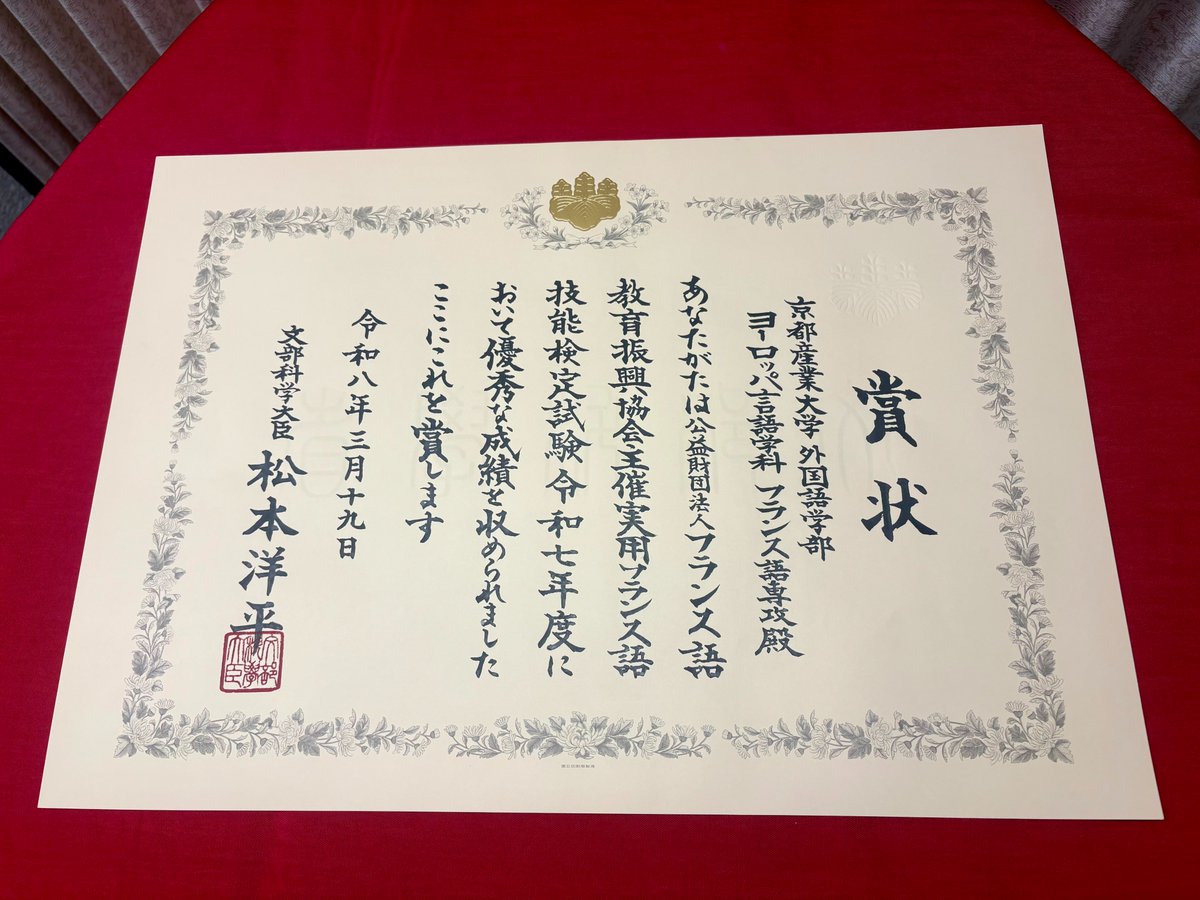 賞状
京都産業大学 外国語学部
ヨーロッパ言語学科 フランス語専攻殿
あなたがたは公益財団法人フランス語
教育振興協会主催実用フランス語
技能検定試験令和七年度に
おいて優秀な成績を収められました
ここにこれを賞します
令和八年三月十九日
文部科学大臣 松本洋平
文部科学大臣